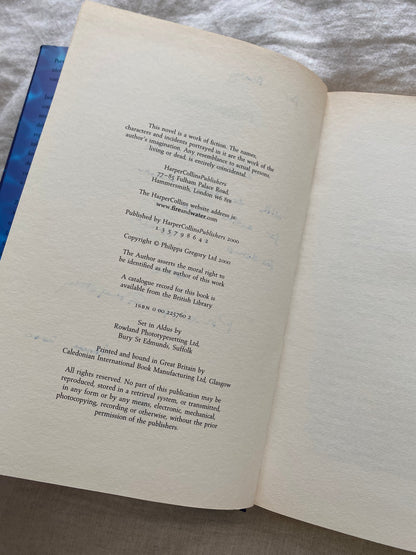 This novel is a work of fiction. The names,
characters and incidents portrayed in it are the work of the
author's imagination. Any resemblance to actual persons,
living or dead, is entirely coincidental.
HarperCollinsPublishers
77–85 Fulham Palace Road,
Hammersmith, London W6 8JB
The HarperCollins website address is:
www.fireandwater.com
Published by HarperCollinsPublishers 2000
1 3 5 7 9 8 6 4 2
Copyright © Philippa Gregory Ltd 2000
The Author asserts the moral right to
be identified as the author of this work
A catalogue record for this book is
available from the British Library
ISBN 0 00 225760 2
Set in Aldus by
Rowland Phototypesetting Ltd,
Bury St Edmunds, Suffolk
Printed and bound in Great Britain by
Caledonian International Book Manufacturing Ltd, Glasgow
All rights reserved. No part of this publication may be
reproduced, stored in a retrieval system, or transmitted,
in any form or by any means, electronic, mechanical,
photocopying, recording or otherwise, without the prior
permission of the publishers.